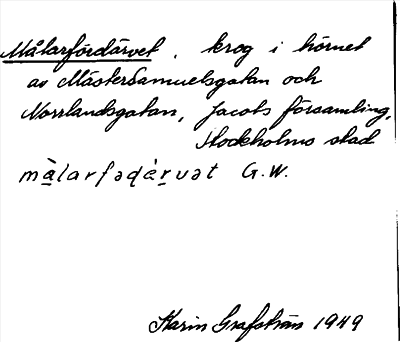 Målarfördärvet, krog i hörnet
av Mäster Samuelsgatan och
Norrlandsgatan, Jacobs församling,
Stockholms stad
mà̱larfəḍá́ṟvət G.W.
Karin Grafström 1949